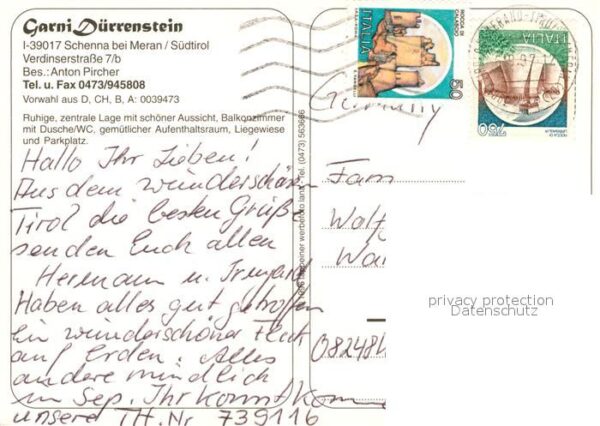 Garni Dürrenstein
I-39017 Schenna bei Meran / Südtirol
Verdinserstraße 7/b
Bes.: Anton Pircher
Tel. u. Fax 0473/945808
Vorwahl aus D, CH, B, A: 0039473
Ruhige, zentrale Lage mit schöner Aussicht, Balkonzimmer
mit Dusche/WC, gemütlicher Aufenthaltsraum, Liegewiese
und Parkplatz.
Hallo Ihr Lieben!
Aus dem wunderschönen
Tirol die besten Grüße
senden Euch allen
Hermann u. Irmgard
Haben alles gut getroffen
Ein wunderschöner Fleck
auf Erden. Alles
andere mündlich
im Sep. Ihr könnt kom
unsere TH.Nr 739116
werbefoto lana - Tel. (0473) 563666
ITALIA
50
ITALIA
750
Germany
Fam
Walt
Wa
08248
privacy protection
Datenschutz